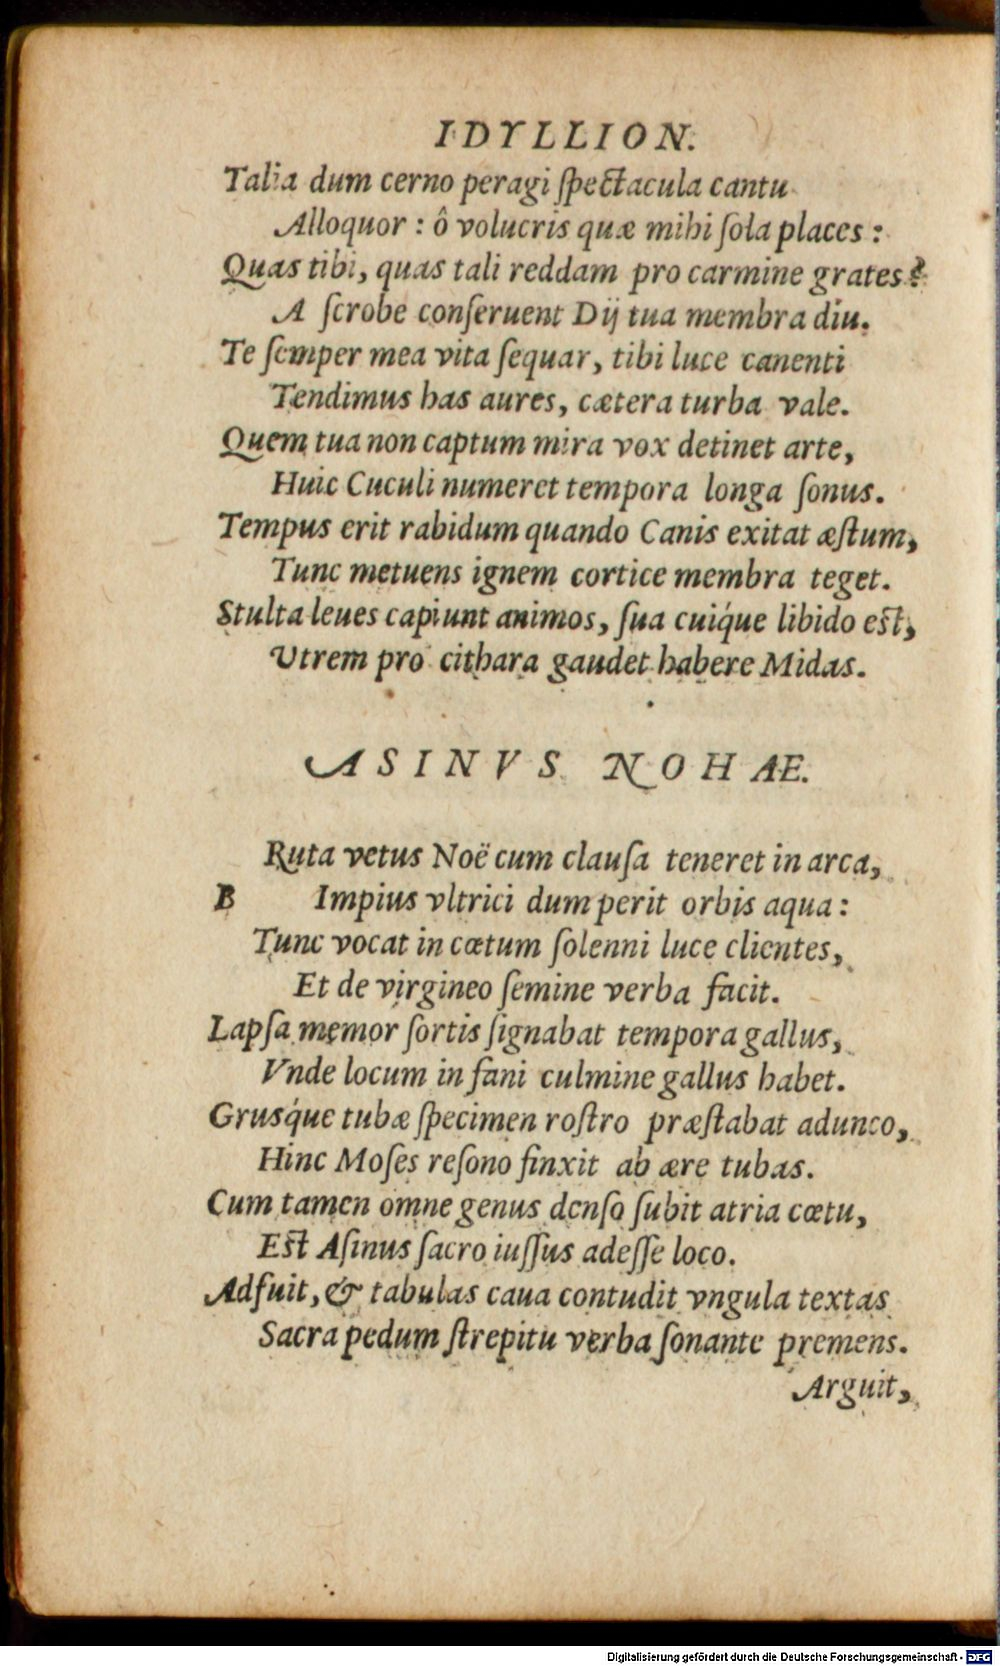 IDYLLION.
Talia dum cerno peragi ſpectacula cantu
Alloquor : ô volucris quæ mihi ſola places :
Quas tibi, quas tali reddam pro carmine grates?
A ſcrobe conſeruent Dij tua membra diu.
Te ſemper mea vita ſequar, tibi luce canenti
Tendimus has aures, cætera turba vale.
Quem tua non captum mira vox detinet arte,
Huic Cuculi numeret tempora longa ſonus.
Tempus erit rabidum quando Canis exitat æſtum,
Tunc metuens ignem cortice membra teget.
Stulta leues capiunt animos, ſua cuiq́ue libido est,
Vtrem pro cithara gaudet habere Midas.
ASINVS NOHAE.
Ruta vetus Noë cum clauſa teneret in arca,
B Impius vltrici dum perit orbis aqua :
Tunc vocat in cœtum ſolenni luce clientes,
Et de virgineo ſemine verba facit.
Lapſa memor ſortis ſignabat tempora gallus,
Vnde locum in fani culmine gallus habet.
Grusq́ue tubæ ſpecimen roſtro præſtabat adunco,
Hinc Moſes reſono finxit ab ære tubas.
Cum tamen omne genus denſo ſubit atria cœtu,
Est Aſinus ſacro iuſſus adeſſe loco.
Adfuit, & tabulas caua contudit vngula textas
Sacra pedum ſtrepitu verba ſonante premens.
Arguit,
Digitalisierung gefördert durch die Deutsche Forschungsgemeinschaft - DFG